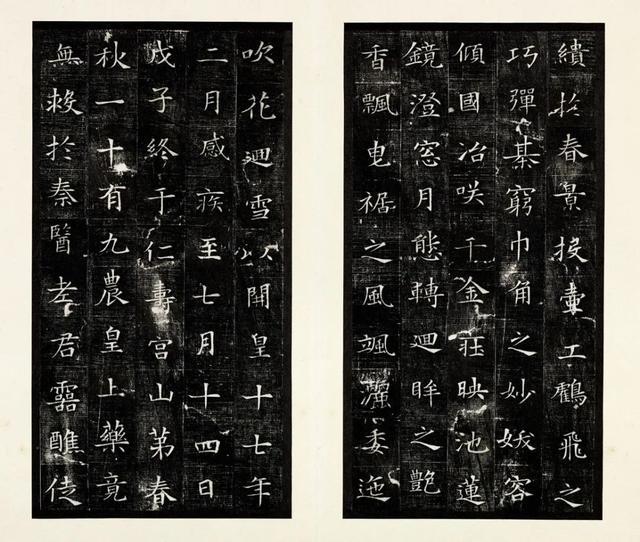 繢扵春景投壷工鶴飛之
巧彈棊窮巾角之妙妖容
傾國冶咲千金莊映池蓮
鏡澄窓月態轉迴眸之艶
香飄曳裾之風颯灑委迤
吹花迴雪以開皇十七年
二月感疾至七月十四日
戊子終于仁壽宮山第春
秋一十有九農皇上藥竟
無救扵秦醫老君靈醮徒